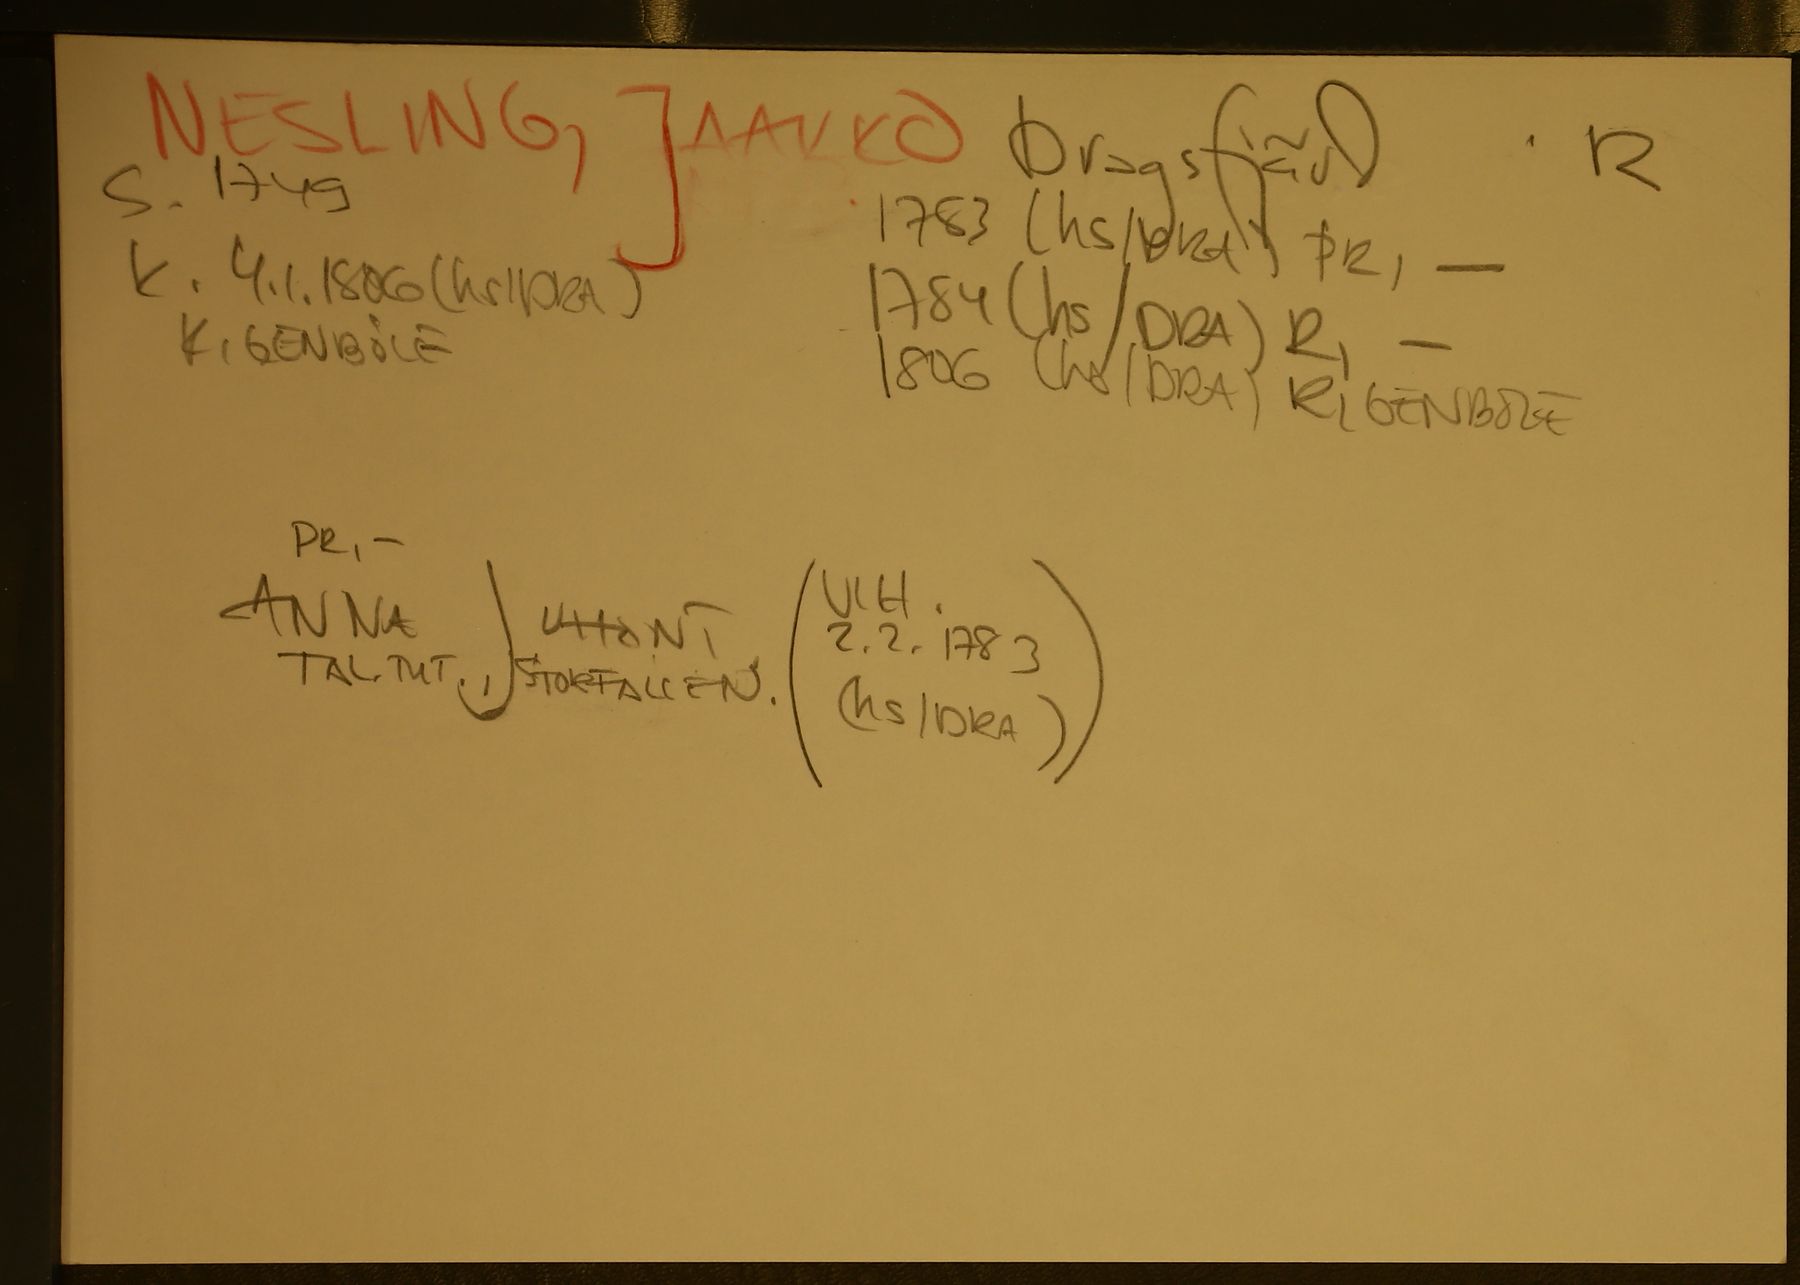 NESLING, JAAKKO Dragsfjärd R
S. 1749
K. 4.1.1806 (hs/DRA)
K, GENBÖLE
1783 (hs/DRA) PR, —
1784 (hs/DRA) R, —
1806 (hs/DRA) R, GENBÖLE
PR, —
ANNA
TAL. TYT.,
STORFALLEN.
(VIH.
2.2. 1783
(hs/DRA))